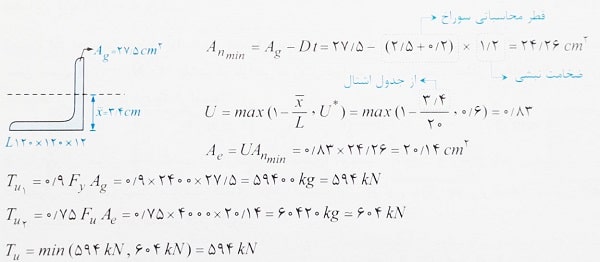 قطر محاسباتی سوراخ
A_g = ۲۷/۵ cm^۲
A_{n min} = A_g − Dt = ۲۷/۵ − (۲/۵ + ۰/۲) × ۱/۲ = ۲۴/۲۶ cm^۲
ضخامت نبشی
از جدول اشتال
x̄ = ۳/۴ cm
U = max (۱ − x̄/L , U*) = max (۱ − ۳/۴/۲۰ , ۰/۶) = ۰/۸۳
L۱۲۰×۱۲۰×۱۲
A_e = U A_{n min} = ۰/۸۳ × ۲۴/۲۶ = ۲۰/۱۴ cm^۲
T_{u۱} = ۰/۹ F_y A_g = ۰/۹ × ۲۴۰۰ × ۲۷/۵ = ۵۹۴۰۰ kg = ۵۹۴ kN
T_{u۲} = ۰/۷۵ F_u A_e = ۰/۷۵ × ۴۰۰۰ × ۲۰/۱۴ = ۶۰۴۲۰ kg ≃ ۶۰۴ kN
T_u = min (۵۹۴ kN , ۶۰۴ kN) = ۵۹۴ kN